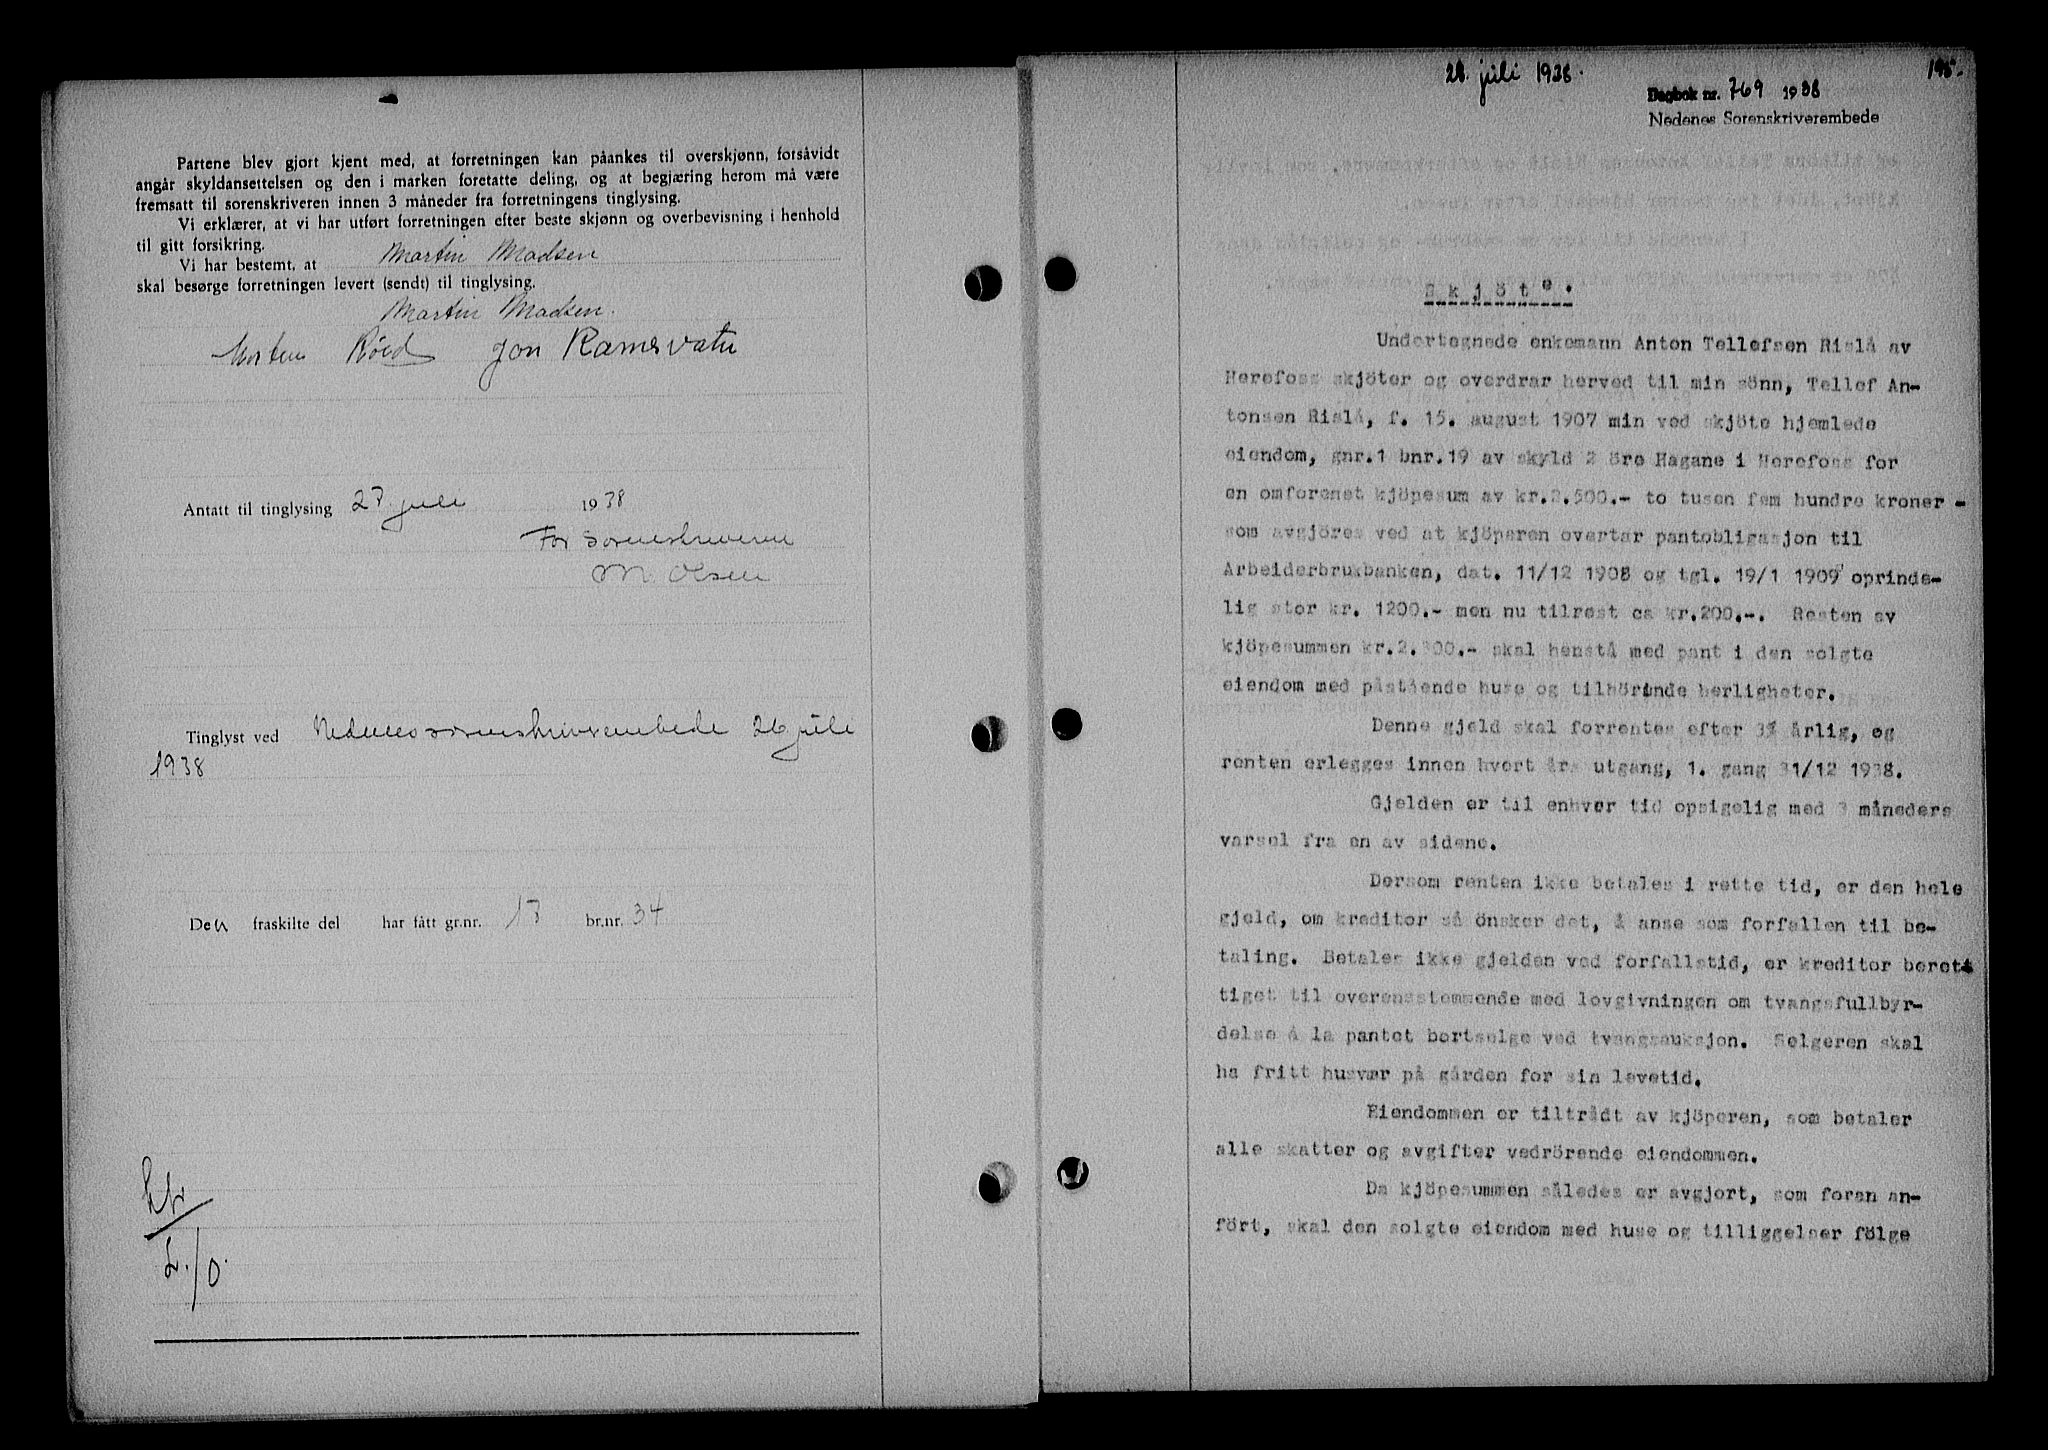 Partene blev gjort kjent med, at forretningen kan påankes til overskjønn, forsåvidt
angår skyldansettelsen og den i marken foretatte deling, og at begjæring herom må være
fremsatt til sorenskriveren innen 3 måneder fra forretningens tinglysing.
Vi erklærer, at vi har utført forretningen efter beste skjønn og overbevisning i henhold
til gitt forsikring.
Vi har bestemt, at Martin Madsen
skal besørge forretningen levert (sendt) til tinglysing.
Martin Madsen.
Morten Röed Jon Ramsvatn
Antatt til tinglysing 27 juli 1938
For Sorenskriveren
M. Olsen
Tinglyst ved Nedenes sorenskriverembede 26 juli
1938
Den fraskilte del har fått gr.nr. 13 br.nr. 34
28. juli 1938.
195.
Dagbok nr. 769 1938
Nedenes Sorenskriverembede
Skjöte.
Undertegnede enkemann Anton Tellefsen Rislå av
Herefoss skjöter og overdrar herved til min sönn, Tellef An-
tonsen Rislå, f. 15. august 1907 min ved skjöte hjemlede
eiendom, gnr.1 bnr.19 av skyld 2 öre Hagane i Herefoss for
en omforenet kjöpesum av kr.2.500.- to tusen fem hundre kroner -
som avgjöres ved at kjöperen overtar pantobligasjon til
Arbeiderbrukbanken, dat. 11/12 1908 og tgl. 19/1 1909 oprinde-
lig stor kr. 1200.- men nu tilrest ca kr.200.-. Resten av
kjöpesummen kr.2.300.- skal henstå med pant i den solgte
eiendom med påstående huse og tilhörende herligheter.
Denne gjeld skal forrentes efter 3% årlig, og
renten erlegges innen hvert års utgang, 1. gang 31/12 1938.
Gjelden er til enhver tid opsigelig med 3 måneders
varsel fra en av sidene.
Dersom renten ikke betales i rette tid, er den hele
gjeld, om kreditor så önsker det, å anse som forfallen til be-
taling. Betales ikke gjelden ved forfallstid, er kreditor beret-
tiget til overensstemmende med lovgivningen om tvangsfullbyr-
delse å la pantet bortselge ved tvangsauksjon. Selgeren skal
ha fritt husvær på gården for sin levetid.
Eiendommen er tiltrådt av kjöperen, som betaler
alle skatter og avgifter vedrörende eiendommen.
Da kjöpesummen således er avgjort, som foran an-
fört, skal den solgte eiendom med huse og tilliggelser fölge